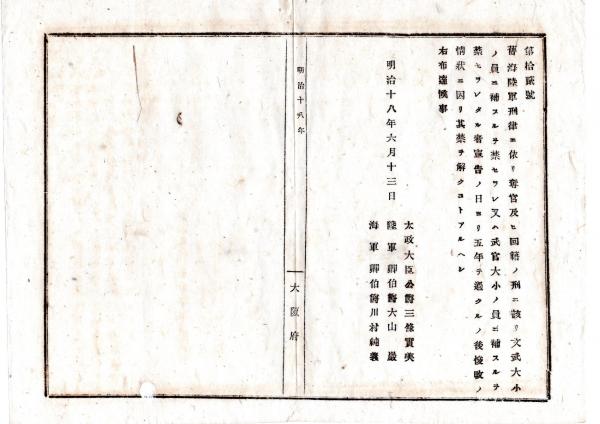 第拾貳號
舊海陸軍刑律ニ依リ奪官及ヒ回籍ノ刑ニ該リ文武大小
ノ員ニ補スルヲ禁セラレ又ハ武官大小ノ員ニ補スルヲ
禁セラレタル者宣告ノ日ヨリ五年ヲ過クルノ後悛改ノ
情狀ニ因リ其禁ヲ解クコトアルヘシ
右布達候事
明治十八年六月十三日
太政大臣公爵三條實美
陸軍卿伯爵大山巖
海軍卿伯爵川村純義
明治十八年
大阪府